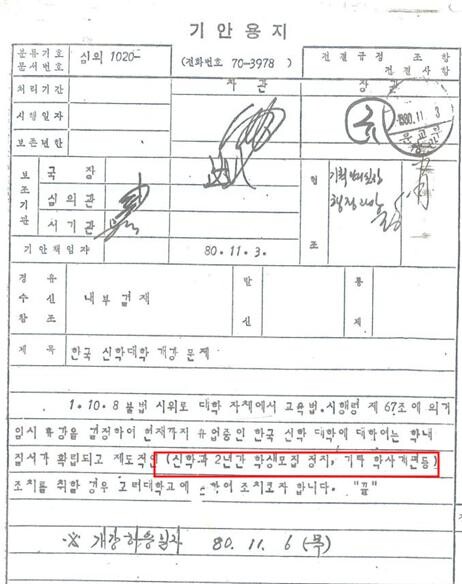 기안용지
분류기호 문서번호 심의 1020- (전화번호 70-3978) 전결규정 조 항 전결사항
처리기간 차관 장관
시행일자 1980.11 3
보존년한
보조기관 국장 협조
심의관
서기관
기안책임자 80.11.3.
경유 수신 참조 내부결재 발신 통제
제목 한국 신학대학 개강 문제
1.10.8 불법 시위로 대학 자체에서 교육법.시행령 제 67조에 의거
임시 휴강을 결정하여 현재까지 휴업중인 한국 신학 대학에 대하여는 학내
질서가 확립되고 제도적인 (신학과 2년간 학생모집 정지, 기타 학사개편등)
조치를 취할 경우 조치코자 합니다. "끝"
※ 개강허용일자 80. 11. 6 (목)